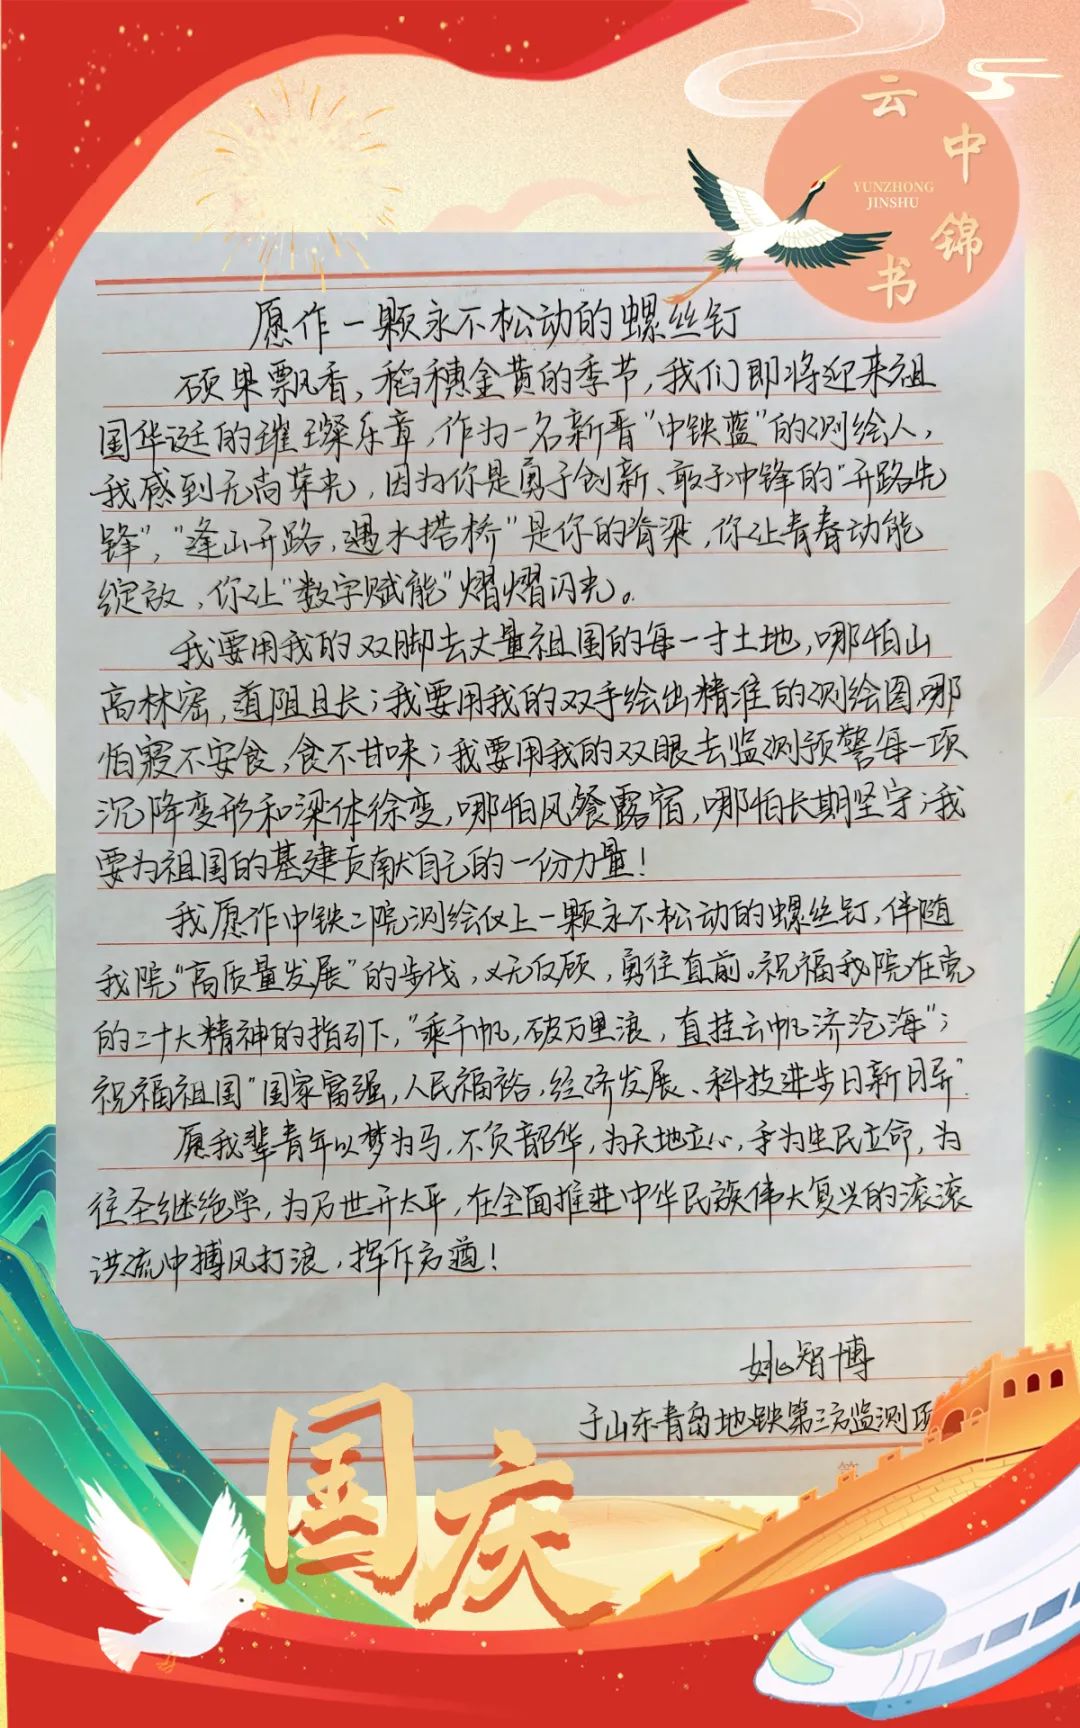 云中锦书
YUNZHONG
JINSHU
愿作一颗永不松动的螺丝钉
硕果飘香，稻穗金黄的季节，我们即将迎来祖
国华诞的璀璨乐章，作为一名新晋“中铁蓝”的测绘人，
我感到无尚荣光，因为你是勇于创新、敢于冲锋的“开路先
锋”，“逢山开路，遇水搭桥”是你的脊梁，你让青春动能
绽放，你让“数字赋能”熠熠闪光。
我要用我的双脚去丈量祖国的每一寸土地，哪怕山
高林密，道阻且长；我要用我的双手绘出精准的测绘图，哪
怕寝不安食，食不甘味；我要用我的双眼去监测预警每一项
沉降变形和梁体徐变，哪怕风餐露宿，哪怕长期坚守；我
要为祖国的基建贡献自己的一份力量！
我愿作中铁二院测绘仪上一颗永不松动的螺丝钉，伴随
我院“高质量发展”的步伐，义无反顾，勇往直前。祝福我院在党
的二十大精神的指引下，“乘千帆，破万里浪，直挂云帆济沧海”；
祝福祖国“国家富强，人民福裕，经济发展、科技进步日新月异”.
愿我辈青年以梦为马，不负韶华，为天地立心，为生民立命，为
往圣继绝学，为万世开太平，在全面推进中华民族伟大复兴的滚滚
洪流中搏风打浪，挥斥方遒！
姚智博
于山东青岛地铁第三方监测项
国庆